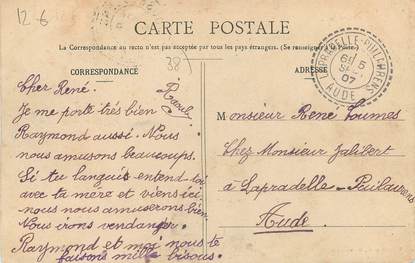 12 6
CARTE POSTALE
La Correspondance au recto n'est pas acceptée par tous les pays étrangers. (Se renseigner à la Poste.)
38
CORRESPONDANCE
ADRESSE
LAPRADELLE-PUILAURENS
5
SEPT
07
AUDE
Cher René.
Raoul
Je me porte très bien
Raymond aussi. Nous
nous amusons beaucoups.
Si tu languis entend-toi
avec ta mère et viens ici
nous nous amuserons bien
Nous irons vendanger.
Raymond et moi nous te
faisons mille bisous.
Monsieur Rene Toumes
Chez Monsieur Jalibert
à Lapradelle-Puilaurens
Aude